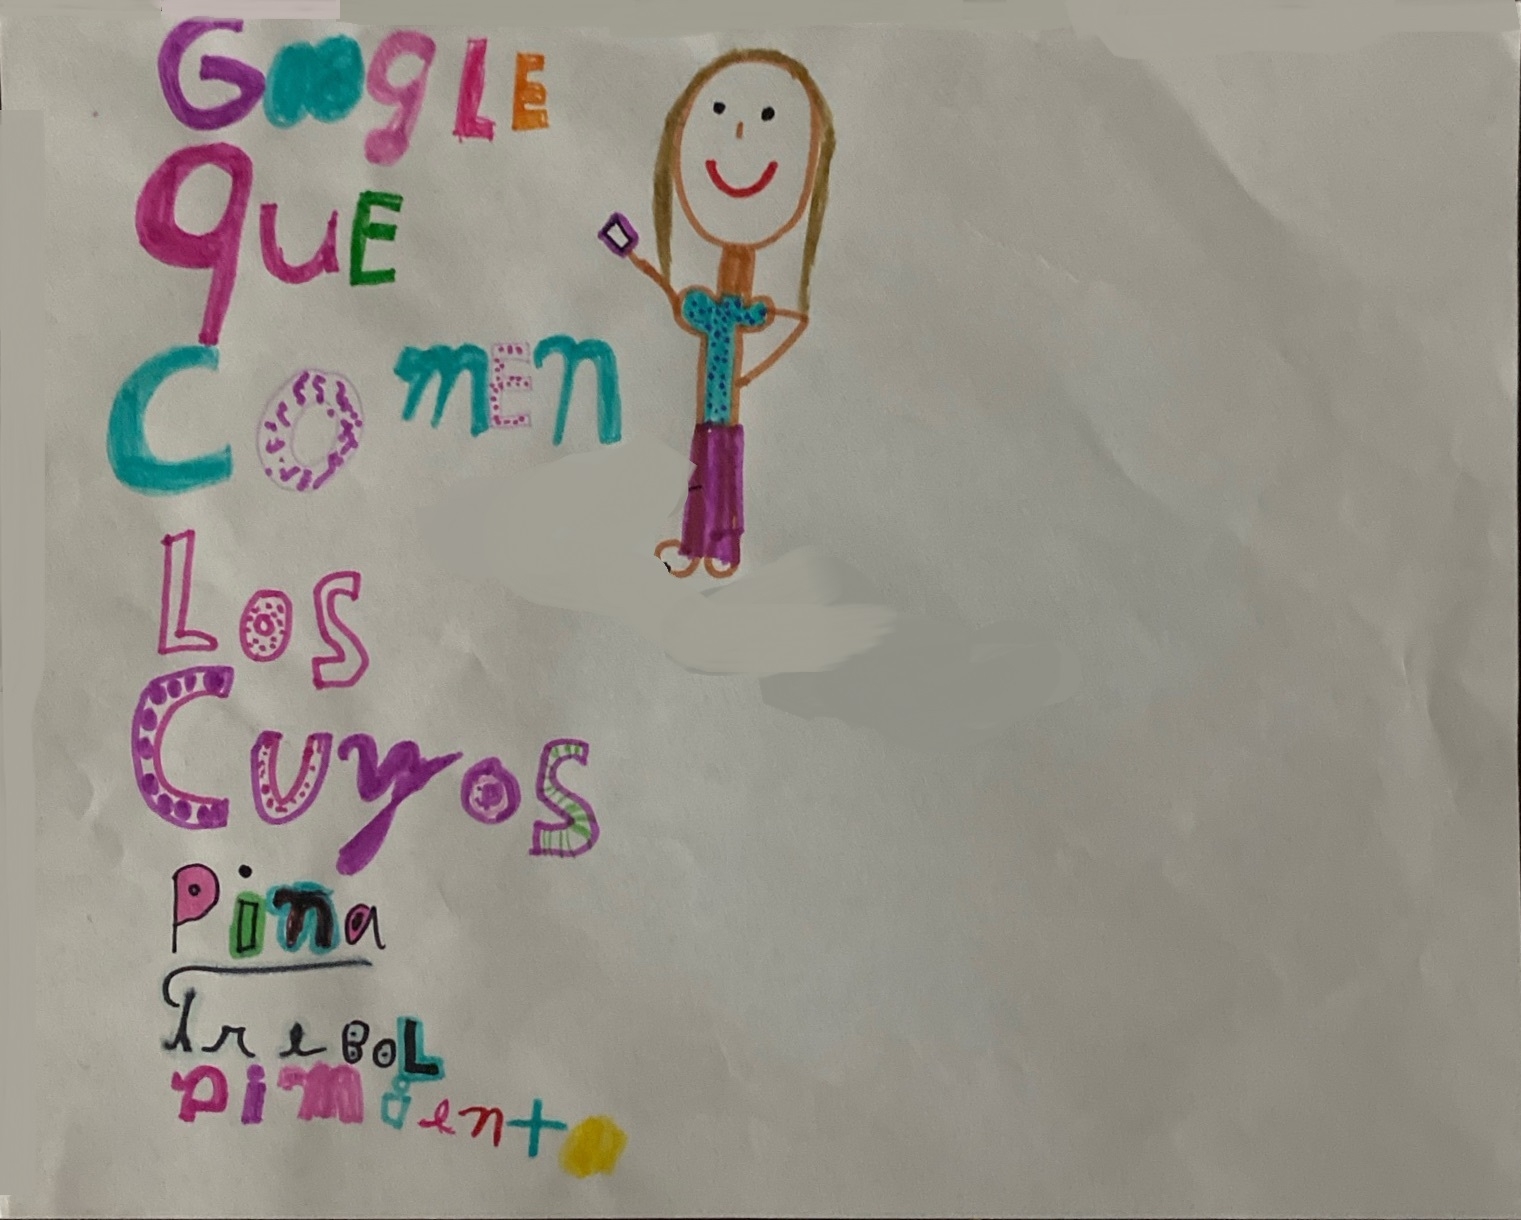 GooglE
quE
ComEn
Los
Cuyos
Pina
TreBoL
pimiento